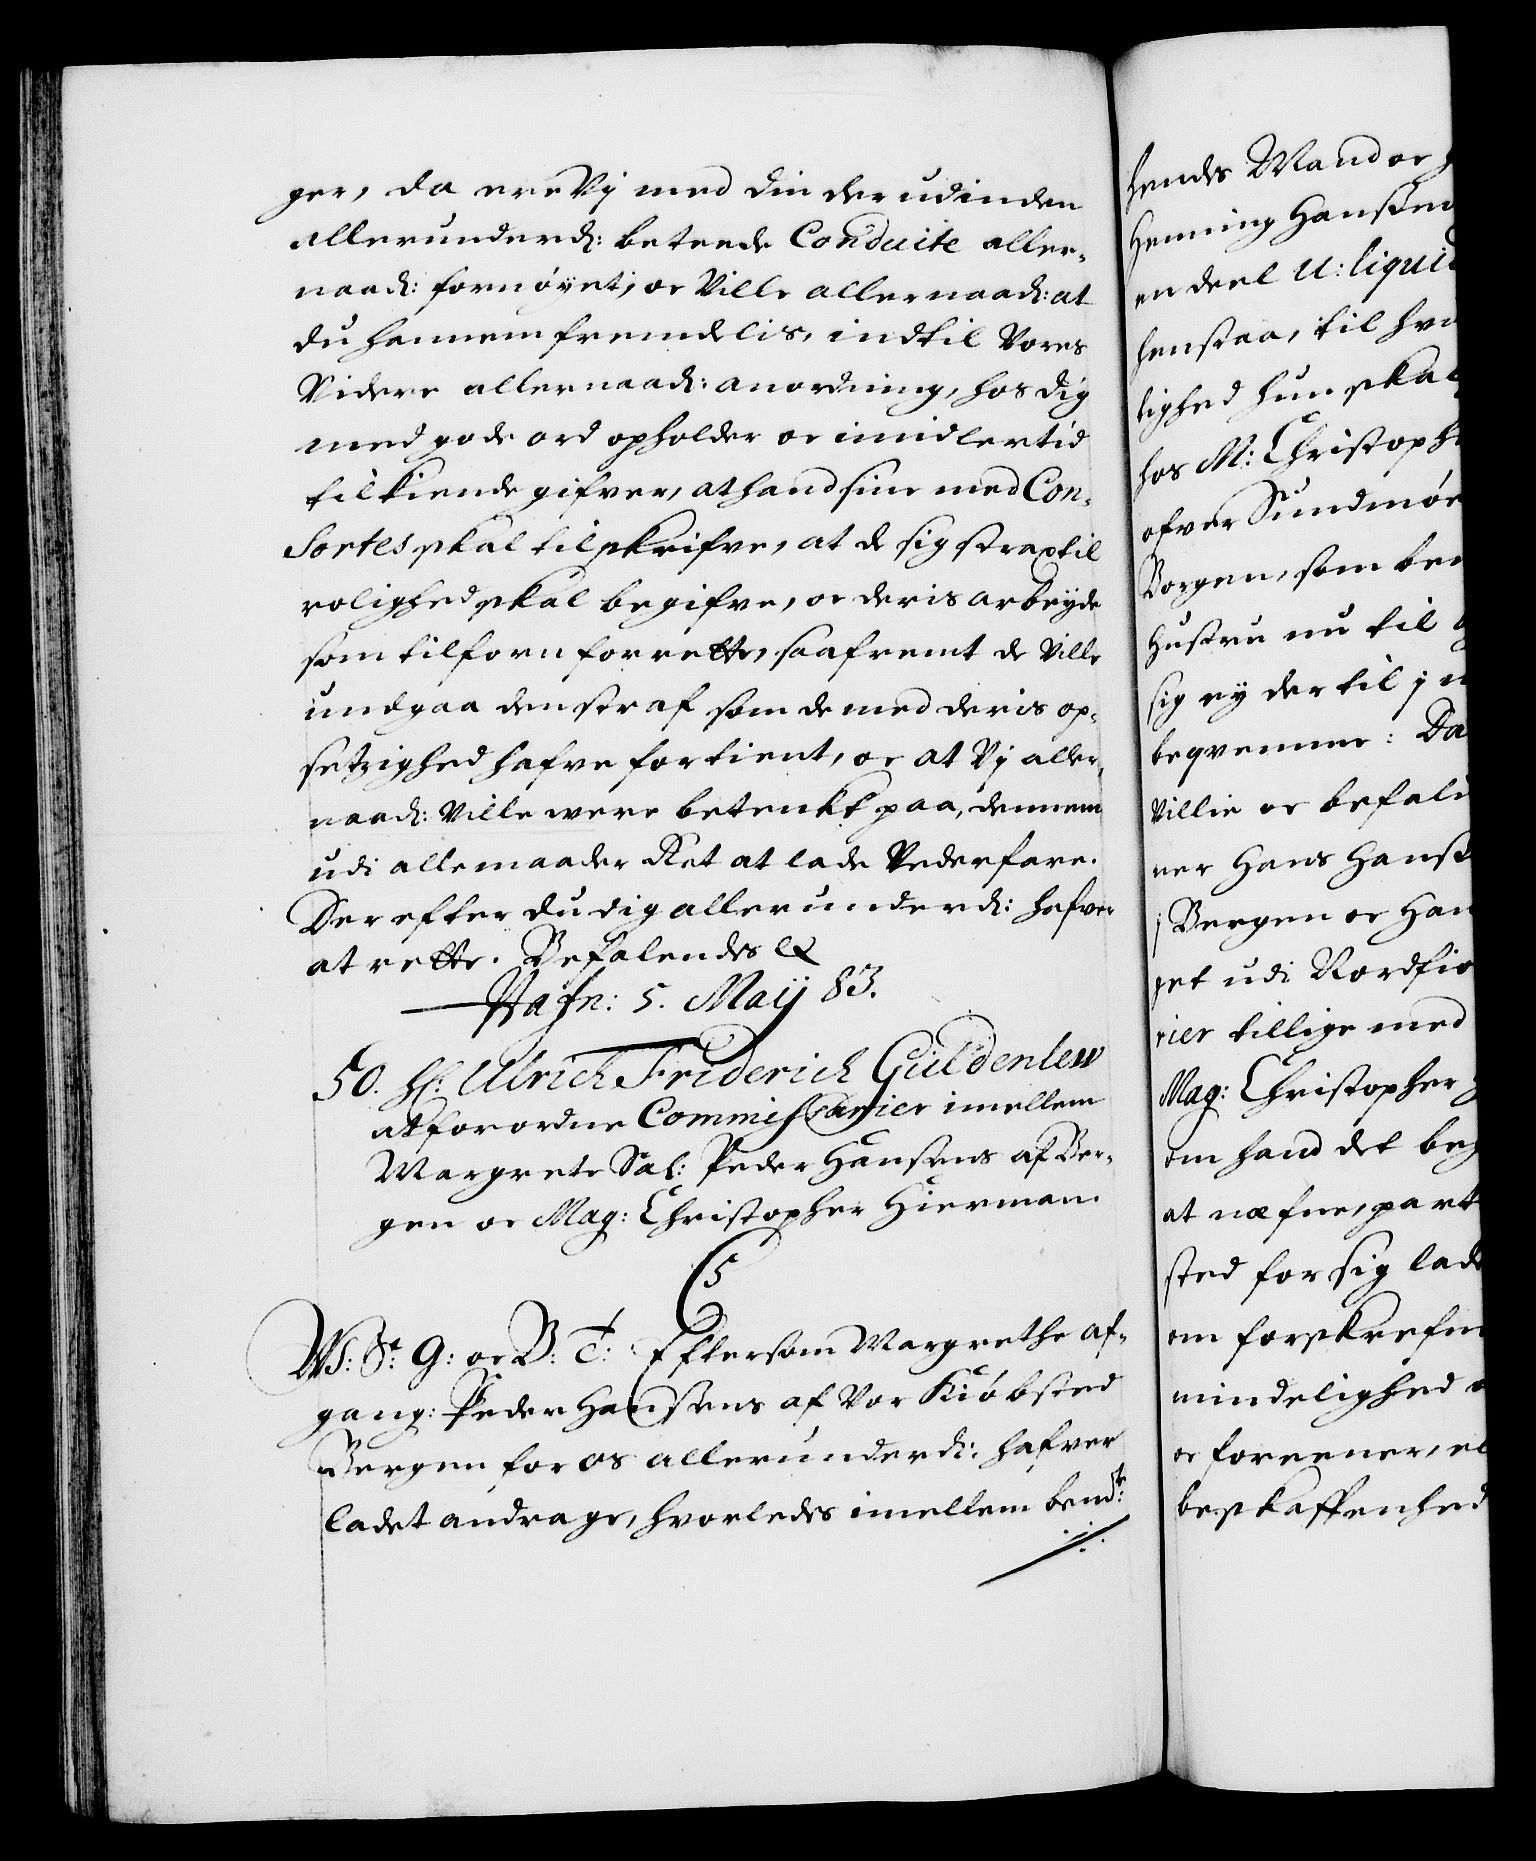 ger, da ere Vj med din derudinden
allerunderd: beteede Conduite aller-
naad: fornøyet, oc Ville allernaad: at
du hannem fremdelis, indtil Vores
Videre allernaad: anordning, hos dig
med gode ord opholder oc imidlertid
tilkiende gifver, at hand sine med Con-
Sortes skal tilskrifve, at de sig strax til
rolighed skal begifve, oc deris arbeyde
som tilforn forrette, saafremt de Ville
undgaa den straf som de med deris op-
setzighed hafve fortient, oc at Vj aller-
naad: Ville were betenkt paa, dennem
udi alle maader Ret at lade Vederfare.
Derefter du dig allerunderd: hafver
at rette. Befalendes &
Hafn: 5. Maij 83.
50. H: Ulrich Friderich Güldenlew
at forordne Commissarier imellem
Margrete Sal: Peder Hansens af Ber-
gen oc Mag: Christopher Hierman.
C5
W: St: G: oc B: T: Eftersom Margrethe af-
gang: Peder Hansens af Vor Kiøbsted
Bergen for os allerunderd: hafver
ladet andrage, hvorledes imellem bemt:
hendes Mand oc
Henning Hansen
en deel U: liquid
henstaa, til hvi
lighed hun skal
hos M: Christoph
ofver Sundmør
Borgen, som be
Hustru nu til
sig ey der til j
beqvemme: Da
Villie oc befal
ner Hans Hans
j Bergen oc Han
get udi Nordfio
rier tillige med
Mag: Christopher
om hand det beg
at næfne, part
sted for sig lad
om forskrefne
mindelighed
oc foreener, el
beskaffenhed